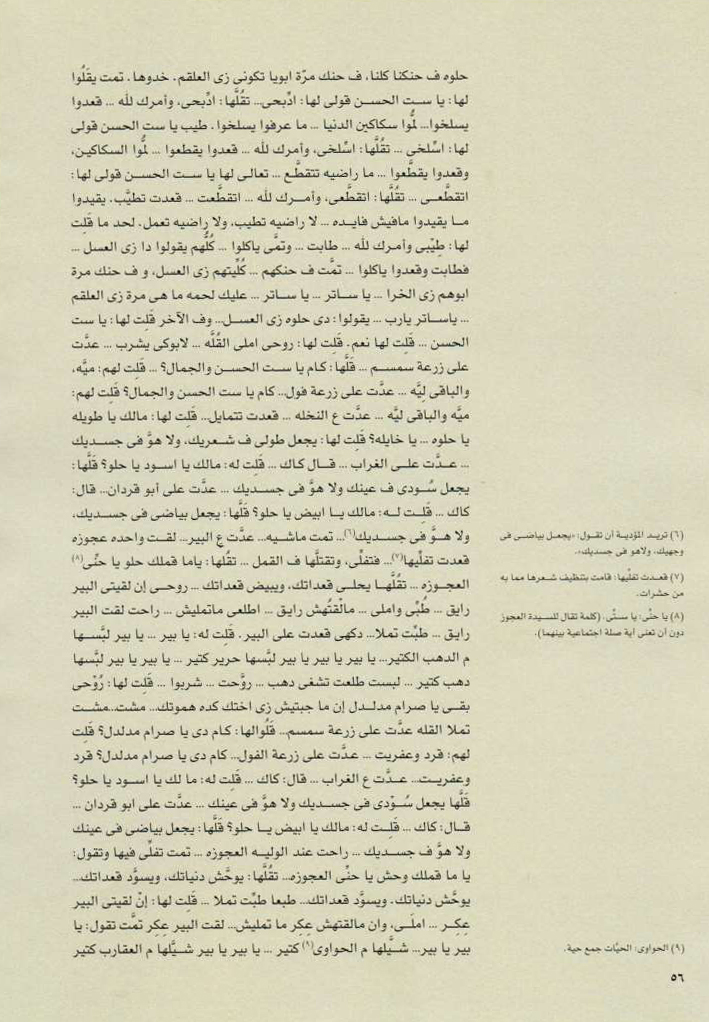 حلوه ف حنكنا كلنا، ف حنك مرّة ابويا تكونى زى العلقم. خدوها. تمت يقَلُوا
لها: يا ست الحسن قولى لها: ادّبحى... تقُلَّها: ادِّبحى، وأمرك لله ... قعدوا
يسلخوا... لمُّوا سكاكين الدنيا ... ما عرفوا يسلخوا. طيب يا ست الحسن قولى
لها: اسَّلخى ... تقُلَّها: اسَّلخى، وأمرك لله ... قعدوا يقطعوا ... لمُّوا السكاكين،
وقعدوا يقطَّعوا ... ما راضيه تتقطَّع ... تعالى لها يا ست الحسن قولى لها:
اتقطَّعى ... تقُلَّها: اتقطَّعى، وأمرك لله ... اتقطَّعت ... قعدت تطيَّب. يقيدوا
ما يقيدوا مافيش فايده ... لا راضيه تطيب، ولا راضيه تعمل. لحد ما قَلِت
لها: طِيْبى وأمرك لله ... طابت ... وتمَّى ياكلوا ... كُلُّهم يقولوا دا زى العسل ...
فطابت وقعدوا ياكلوا ... تمَّت ف حنكهم ... كُلِّيتهم زى العسل، و ف حنك مرة
ابوهم زى الخرا ... يا ساتر ... يا ساتر ... عليك لحمه ما هى مرة زى العلقم
... ياساتر يارب ... يقولوا: دى حلوه زى العسل... وف الآخر قَلِت لها: يا ست
الحسن ... قَلِت لها نعم. قَلِت لها: روحى املى القُلَّه ... لابوكى يشرب ... عدَّت
على زرعة سمسم ... قَلَّها: كام يا ست الحسن والجمال؟ ... قَلِت لهم: ميَّه،
والباقى ليَّه ... عدَّت على زرعة فول... كام يا ست الحسن والجمال؟ قَلِت لهم:
ميَّه والباقى ليَّه ... عدَّت ع النخله ... قعدت تتمايل... قَلِت لها: مالك يا طويله
يا حلوه ... يا خايله؟ قَلِت لها: يجعل طولى ف شعريك، ولا هوَّ فى جسديك
... عدَّت على الغراب ... قال كاك ... قَلِت له: مالك يا اسود يا حلو؟ قَلَّها:
يجعل سُودى ف عينك ولا هوَّ فى جسديك ... عدَّت على أبو قردان... قال:
كاك ... قَلِت له: مالك يا ابيض يا حلو؟ قَلَّها: يجعل بياضى فى جسديك،
ولا هوَّ فى جسديك(٦)... تمت ماشيه... عدَّت ع البير... لقت واحده عجوزه
قعدت تفلّيها(٧)... فتفلّى، وتقتلَّها ف القمل ... تقُلَّها: ياما قملك حلو يا حنِّى(٨)
العجوزه ... تقُلَّها يحلى قعداتك، ويبيض قعداتك ... روحى إن لقيتى البير
رايق ... طُبِّى واملى ... مالْقتُهش رايق ... اطلعى ماتمليش ... راحت لقت البير
رايق ... طبِّت تملا... دكهى قعدت على البير. قَلِت له: يا بير ... يا بير لبِّسها
م الدهب الكتير... يا بير يا بير يا بير لبِّسها حرير كتير ... يا بير يا بير لبِّسها
دهب كتير ... لبست طلعت تشغى دهب ... روَّحت ... شربوا ... قَلِت لها: رُوْحى
بقى يا صرام مدلدل إن ما جبتيش زى اختك كده هموتك... مشت...مشت
تملا القله عدَّت على زرعة سمسم... قَلُوالها: كام دى يا صرام مدلدل؟ قَلِت
لهم: قرد وعفريت ... عدَّت على زرعة الفول... كام دى يا صرام مدلدل؟ قرد
وعفريت... عدَّت ع الغراب ... قال: كاك ... قَلِت له: ما لك يا اسود يا حلو؟
قَلَّها يجعل سُوْدى فى جسديك ولا هوَّ فى عينك ... عدَّت على ابو قردان ...
قال: كاك ... قَلِت له: مالك يا ابيض يا حلو؟ قَلَّها: يجعل بياضى فى عينك
ولا هوَّ ف جسديك ... راحت عند الوليه العجوزه ... تمت تفلِّى فيها وتقول:
يا ما قملك وحش يا حنِّى العجوزه... تقُلَّها: يوحَّش دنياتك، ويسوَّد قعداتك...
يوحَّش دنياتك. ويسوَّد قعداتك... طبعا طبِّت تملا ... قَلِت لها: إنْ لقيتى البير
عكِر ... املَى، وان مالقتهش عكِر ما تمليش... لقت البير عكِر تمَّت تقول: يا
بير يا بير... شيِّلها م الحواوى(٩) كتير ... يا بير يا بير شيِّلها م العقارب كتير
(٦) تريد المؤدية أن تقول: «يجعل بياضى فى
وجهيك، ولاهو فى جسديك».
(٧) قعدت تفلّيها: قامت بتنظيف شعرها مما به
من حشرات.
(٨) يا حنّى: يا ستّى. (كلمة تقال للسيدة العجوز
دون أن تعنى أية صلة اجتماعية بينهما).
(٩) الحواوى: الحيَّات جمع حية.
٥٦